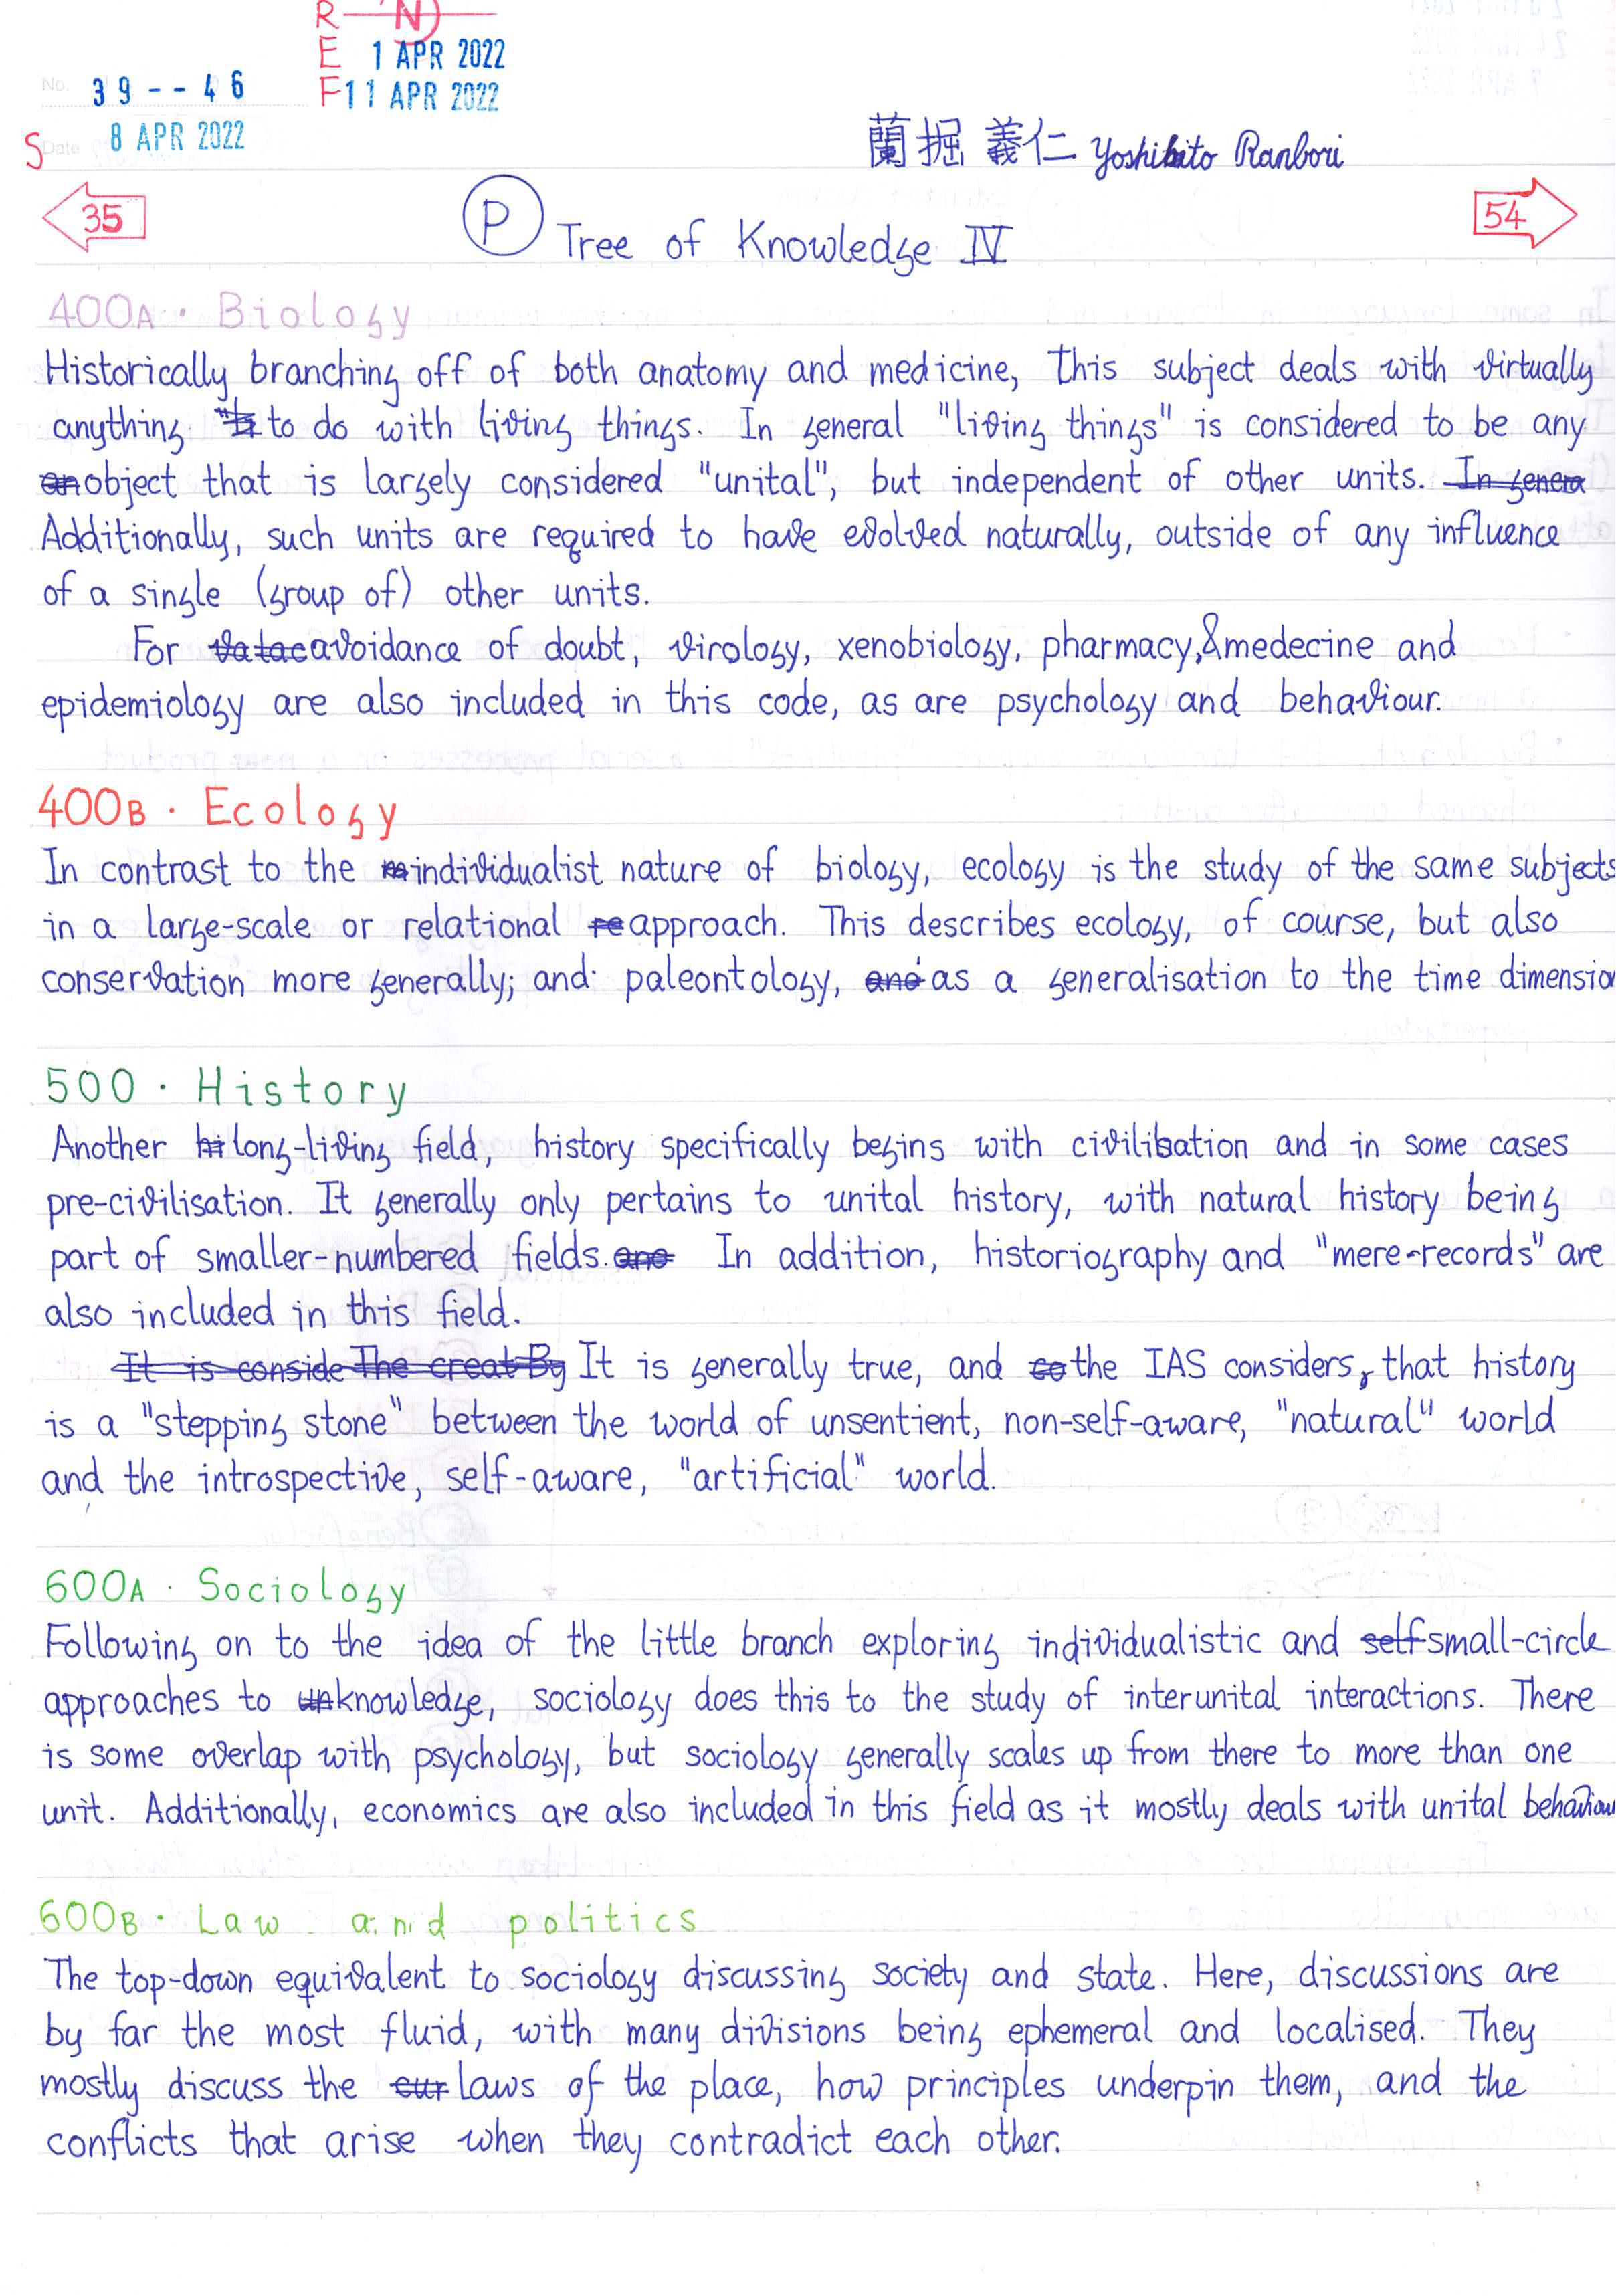 R N
E 1 APR 2022
No. 39--46 F 11 APR 2022
S Date 8 APR 2022
蘭掘 義仁 Yoshihito Ranbori
35 P Tree of Knowledge IV 54
400A · Biology
Historically branching off of both anatomy and medicine, this subject deals with virtually
anything to do with living things. In general "living things" is considered to be any
an object that is largely considered "unital", but independent of other units. In genera
Additionally, such units are required to have evolved naturally, outside of any influence
of a single (group of) other units.
For avoidance of doubt, virology, xenobiology, pharmacy, & medecine and
epidemiology are also included in this code, as are psychology and behaviour.
400B · Ecology
In contrast to the individualist nature of biology, ecology is the study of the same subjects
in a large-scale or relational re approach. This describes ecology, of course, but also
conservation more generally; and paleontology, and as a generalisation to the time dimension
500 · History
Another hi long-living field, history specifically begins with civilisation and in some cases
pre-civilisation. It generally only pertains to unital history, with natural history being
part of smaller-numbered fields. and In addition, historiography and "mere-records" are
also included in this field.
It is conside The creat By It is generally true, and co the IAS considers, that history
is a "stepping stone" between the world of unsentient, non-self-aware, "natural" world
and the introspective, self-aware, "artificial" world.
600A · Sociology
Following on to the idea of the little branch exploring individualistic and self small-circle
approaches to un knowledge, sociology does this to the study of interunital interactions. There
is some overlap with psychology, but sociology generally scales up from there to more than one
unit. Additionally, economics are also included in this field as it mostly deals with unital behaviour
600B · Law and politics
The top-down equivalent to sociology discussing society and state. Here, discussions are
by far the most fluid, with many divisions being ephemeral and localised. They
mostly discuss the cur laws of the place, how principles underpin them, and the
conflicts that arise when they contradict each other.